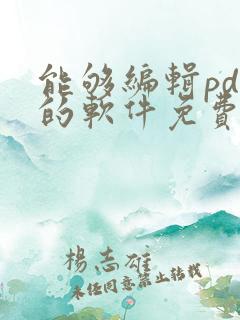 能够编辑pd
的软件免费
杨志雄
未经同意禁止转载